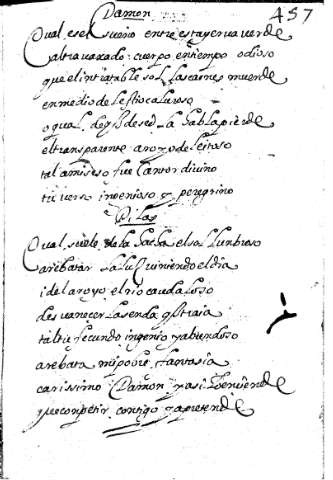 Damon 457
Qual es el sueño entre esta yerua verde
al trauaxado cuerpo en tiempo odioso
que el intratable sol las carnes muerde
en medio del estio caluroso
o qual de sed la sab la pierde
el transparente aroyo deleitoso
tal a mi seso fue cantor divino
tu verso ingenioso y peregrino
Pilas
Qual suele de la hacha el sol lunbroso
arebatar la luz viniendo el dia
i del aroyo el rio caudaloso
desuanecer la senda q̃ traia
tal tu fecundo ingenio y abundoso
arebata mi pobre fantasia
carissimo Damon y asi
que conpetir contigo ya pretende